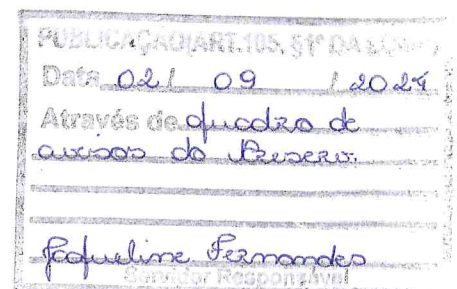 PUBLICAÇÃO(ART.105, §1º DA
Data 02/ 09 /2024
Através de quadro de
avisos do
Jaqueline Fernandes
Servidor Responsável